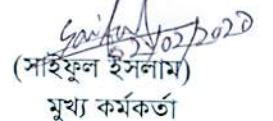 02/02/2020
(সাইফুল ইসলাম)
মুখ্য কর্মকর্তা